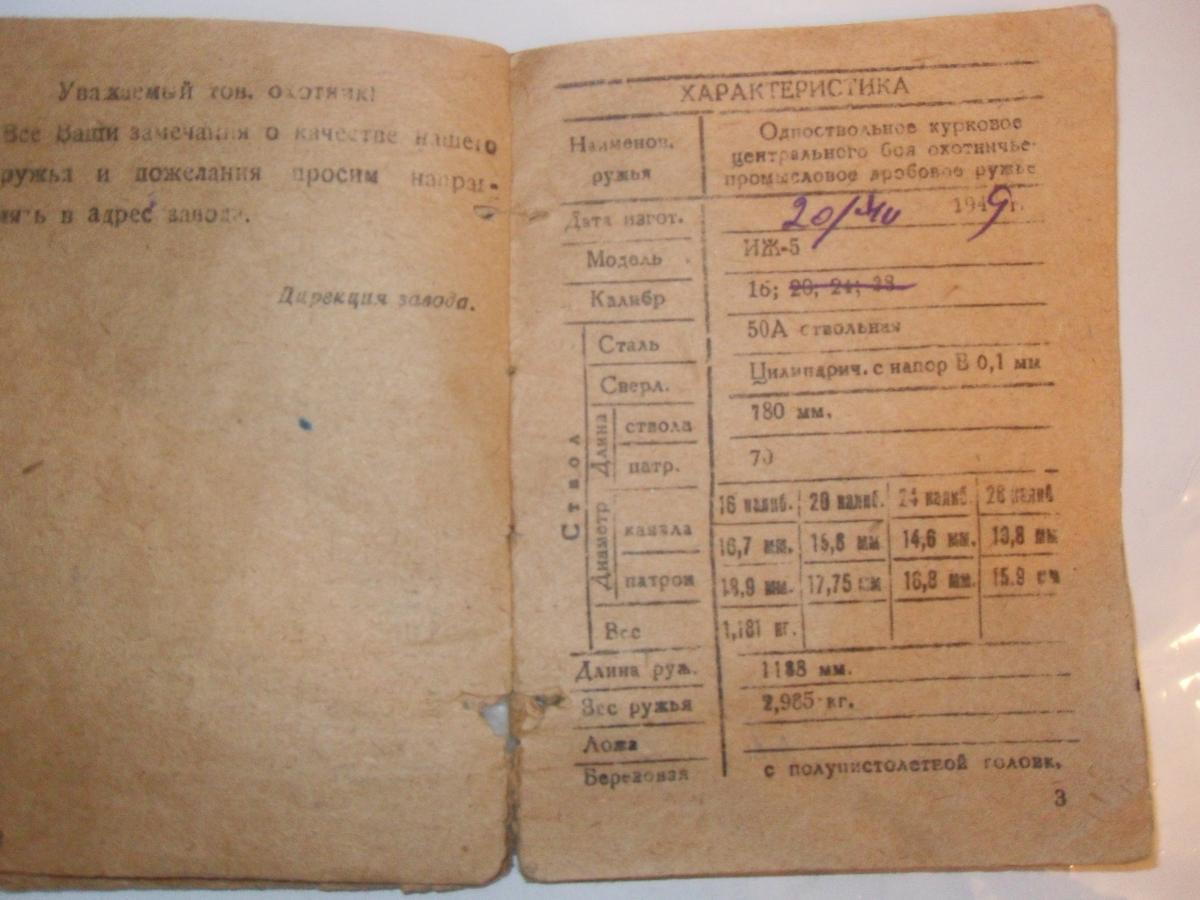 Уважаемый тов. охотник!
Все Ваши замечания о качестве нашего
ружья и пожелания просим направ-
лять в адрес завода.
Дирекция завода.
ХАРАКТЕРИСТИКА
Наименов. ружья
Одноствольное курковое
центрального боя охотничье-
промысловое дробовое ружье
Дата изгот. 20/ 1949 г.
Модель ИЖ-5
Калибр 16; 20; 24; 28
Ствол
Сталь 50А ствольная
Сверл. Цилиндрич. с напор В 0,1 мм
Длина
ствола 780 мм.
патр. 70
Диаметр
16 калиб. 20 калиб. 24 калиб. 28 калиб
канала 16,7 мм. 15,6 мм 14,6 мм. 13,8 мм
патрон 18,9 мм. 17,75 мм 16,8 мм. 15.9 мм
Вес 1,181 кг.
Длина руж. 1188 мм.
Вес ружья 2,985 кг.
Ложа
Березовая с полупистолетной головк.
3